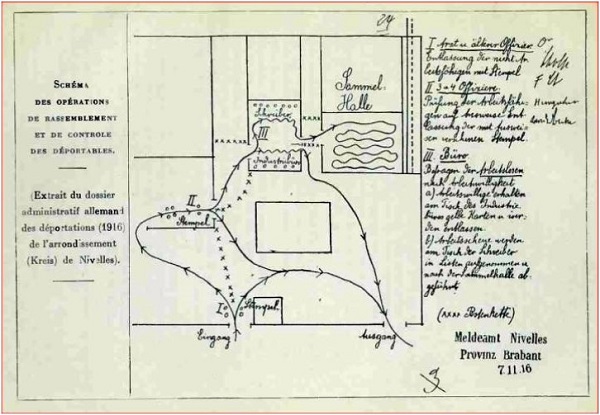 SCHÉMA
DES OPÉRATIONS
DE RASSEMBLEMENT
ET DE CONTROLE
DES DÉPORTABLES.
(Extrait du dossier
administratif allemand
des déportations (1916)
de l'arrondissement
(Kreis) de Nivelles).
24
Sammel-
Halle
Schreiber
III
Industriebüro
II
Stempel
I
Stempel
Eingang
Ausgang
I Arzt u. älterer Offizier
Entlassung der nicht Ar-
beitsfähigen mit Stempel
II 3-4 Offiziere
Prüfung der Arbeitsfähi-
gen auf Ausweise Ent-
lassung der mit Auswei-
sen versehenen Stempel.
III. Büro
Befragen der Arbeitslosen
nach Arbeitswilligkeit
a) Arbeitswillige erhalten
am Tisch des Industrie-
büros gelbe Karten u. wer-
den entlassen.
b) Arbeitsscheue werden
am Tisch der Schreiber
in Listen aufgenommen u.
nach der Sammelhalle ab-
geführt.
(xxxx Postenkette)
Meldeamt Nivelles
Provinz Brabant
7.11.16